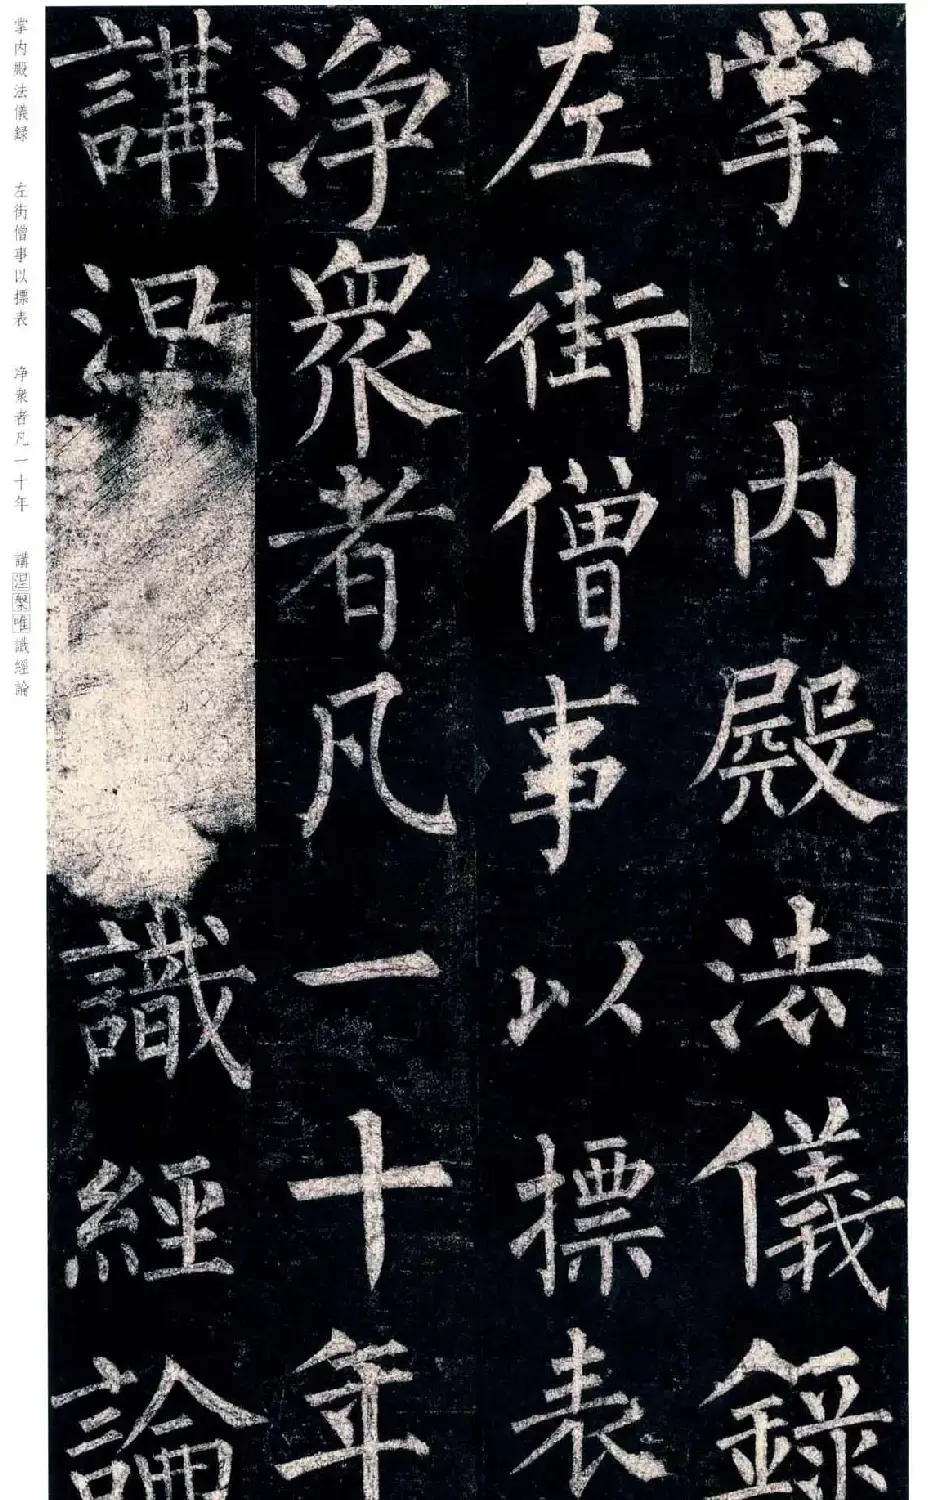 掌内殿法儀錄
左街僧事以摽表
淨衆者凡一十年
講涅識經論
掌内殿法儀録 左街僧事以摽表 净衆者凡一十年 講涅槃唯識經論